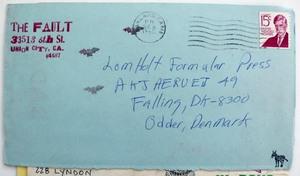 THE FAULT
33513 6th St.
UNION CITY, CA.
94587
15c
Lomholt Formular Press
AKJÆRVEJ 49
Falling, DK-8300
Odder, Denmark
228 LYNDON